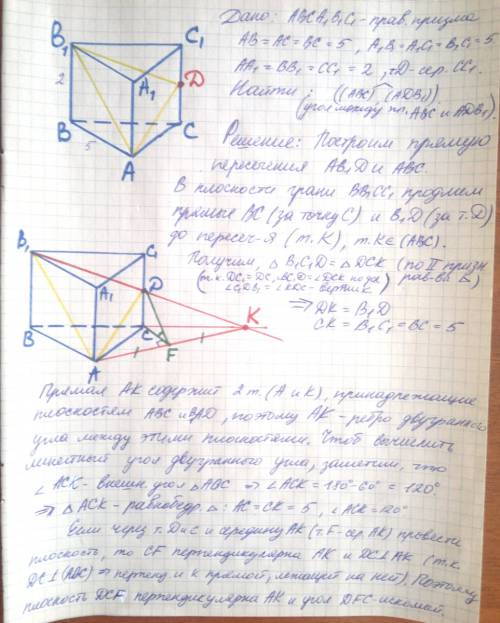 B₁ C₁
A₁ D
2
B C
5
A
Дано: ABCA₁B₁C₁ - прав. призма
AB=AC=BC=5, A₁B=A₁C₁=B₁C₁=5
AA₁=BB₁=CC₁=2, т.D-сер. CC₁.
Найти: ((ABC)^(ADB₁))
(угол между пл. ABC и ADB₁).
Решение: Построим прямую
пересечения AB₁D и ABC.
В плоскости грани BB₁CC₁ продлим
прямые BC (за точку C) и B₁D (за т.D)
до пересеч-я (т.K), т.K∈(ABC).
Получим, △B₁C₁D=△DCK (по II призн.
рав-ва △)
(т.к. DC₁=DC,
∠C₁DB₁=∠KDC-вертик.
⇒ DK=B₁D
CK=B₁C₁=BC=5
B₁ C₁
A₁ D
B C K
F
A
Прямая AK содержит 2 т. (A и K), принадлежащие
плоскостям ABC и B₁AD, поэтому AK - ребро двугранного
угла между этими плоскостями. Чтоб вычислить
линейный угол двугранного угла, заметим, что
∠ACK - внешн. угол △ABC ⇒ ∠ACK=180°-60°=120°
⇒ △ACK - равнобедр. △: AC=CK=5, ∠ACK=120°
Если через т.D и C и середину AK (т.F-сер. AK) провести
плоскость, то CF перпендикулярна AK и DC⊥AK (т.к.
DC⊥(ABC) ⇒ перпенд. и к прямой, лежащей на ней). Поэтому
плоскость DCF перпендикулярна AK и угол DFC-искомый.